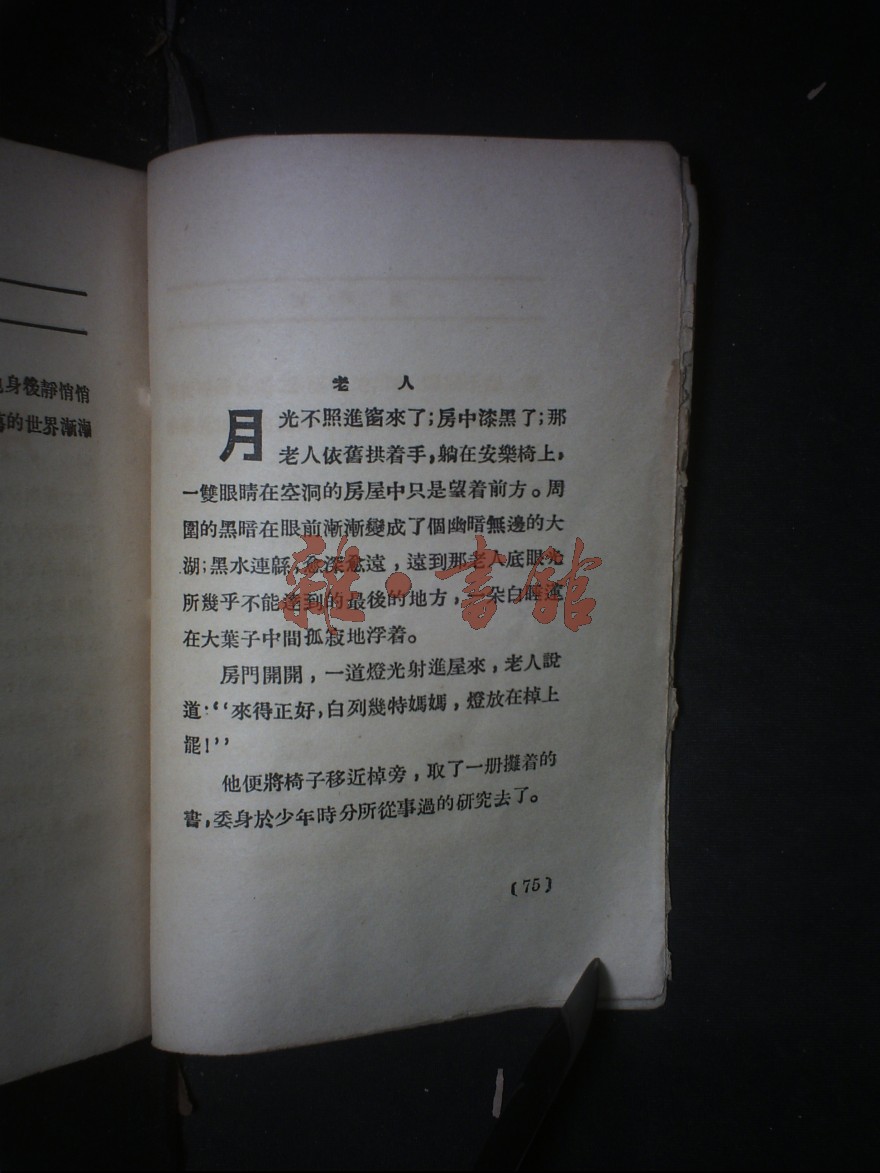 身後靜悄悄
的世界漸漸
老人
月光不照進窗來了;房中漆黑了;那
老人依舊拱着手,躺在安樂椅上,
一雙眼睛在空洞的房屋中只是望着前方。周
圍的黑暗在眼前漸漸變成了個幽暗無邊的大
湖;黑水連緜,愈深愈遠,遠到那老人底眼光
所幾乎不能達到的最後的地方,一朵白睡蓮
在大葉子中間孤寂地浮着。
房門開開,一道燈光射進屋來,老人說
道:“來得正好,白列幾特媽媽,燈放在棹上
罷!”
他便將椅子移近棹旁,取了一册攤着的
書,委身於少年時分所從事過的研究去了。
(75)
雜·書館